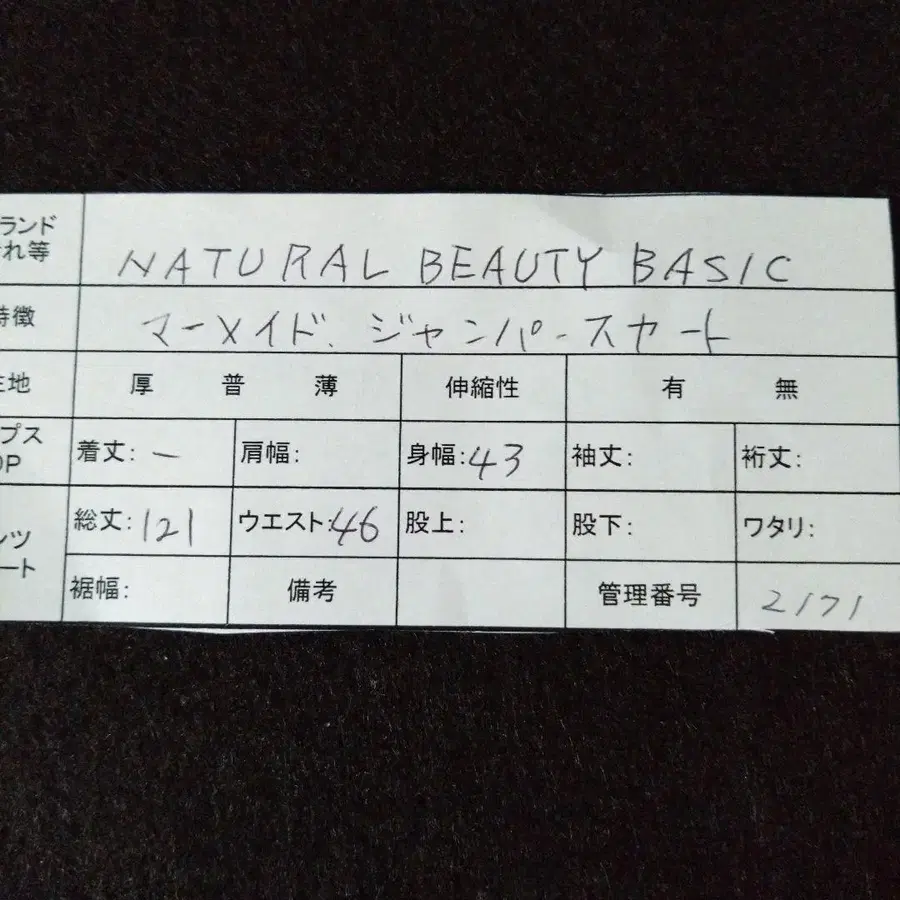 ランド NATURAL BEAUTY BASIC
れ等
特徴 マーメイド、ジャンパースカート
地 厚 普 薄 伸縮性 有 無
プス 着丈:ー 肩幅: 身幅:43 袖丈: 裄丈:
OP
ンツ 総丈:121 ウエスト:46 股上: 股下: ワタリ:
ート 裾幅: 備考 管理番号 2171